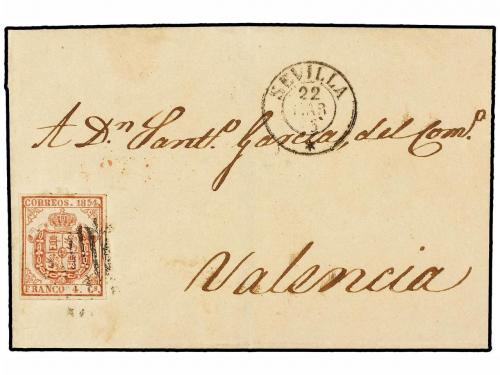 SEVILLA
22
MAR
A Dn Santo. Garcia, del Como.
CORREOS. 1854
FRANCO 4. Cs
Valencia